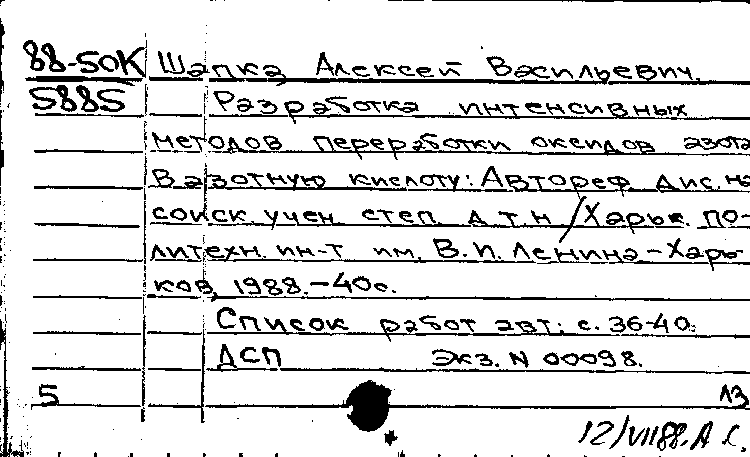 88-50К Шапка Алексей Васильевич.
5885 Разработка интенсивных
методов переработки оксидов азота
в азотную кислоту: Автореф. дис. на
соиск. учен. степ. д.т.н. / Харьк. по-
литехн. ин-т им. В.И. Ленина - Харь-
ков, 1988. - 40с.
Список работ авт.: с. 36-40.
ДСП Экз. N 00098.
5 13
12/VII88. А.С.